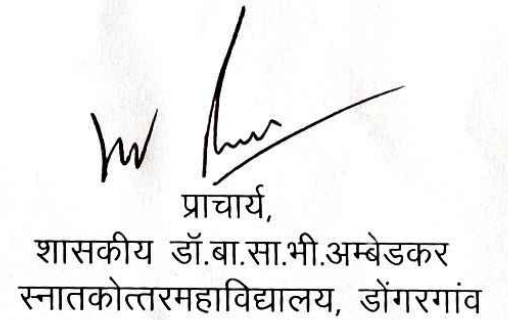 प्राचार्य,
शासकीय डॉ.बा.सा.भी.अम्बेडकर
स्नातकोत्तरमहाविद्यालय, डोंगरगांव